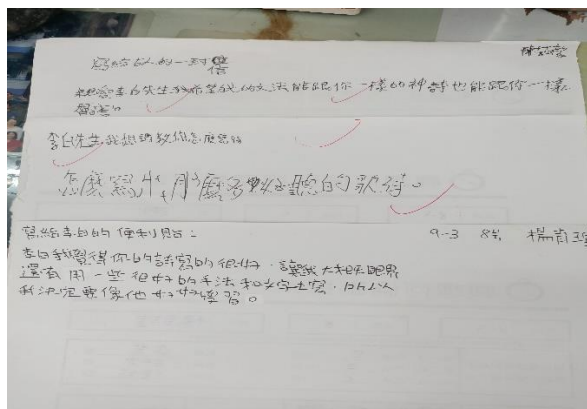 寫給李白的一封信
親愛李白先生我希望我的文法能跟你一樣的神奇也能跟你一樣
李白先生我想請教你怎麼寫詩
怎麼寫出那麼多好聽的歌詩。
寫給李白的便利貼: 9-3 8號
李白我覺得你的詩寫的很好,讓我大打開眼界
還有用一些很好的手法和文字去寫,所以
我決定要像他好好練習。